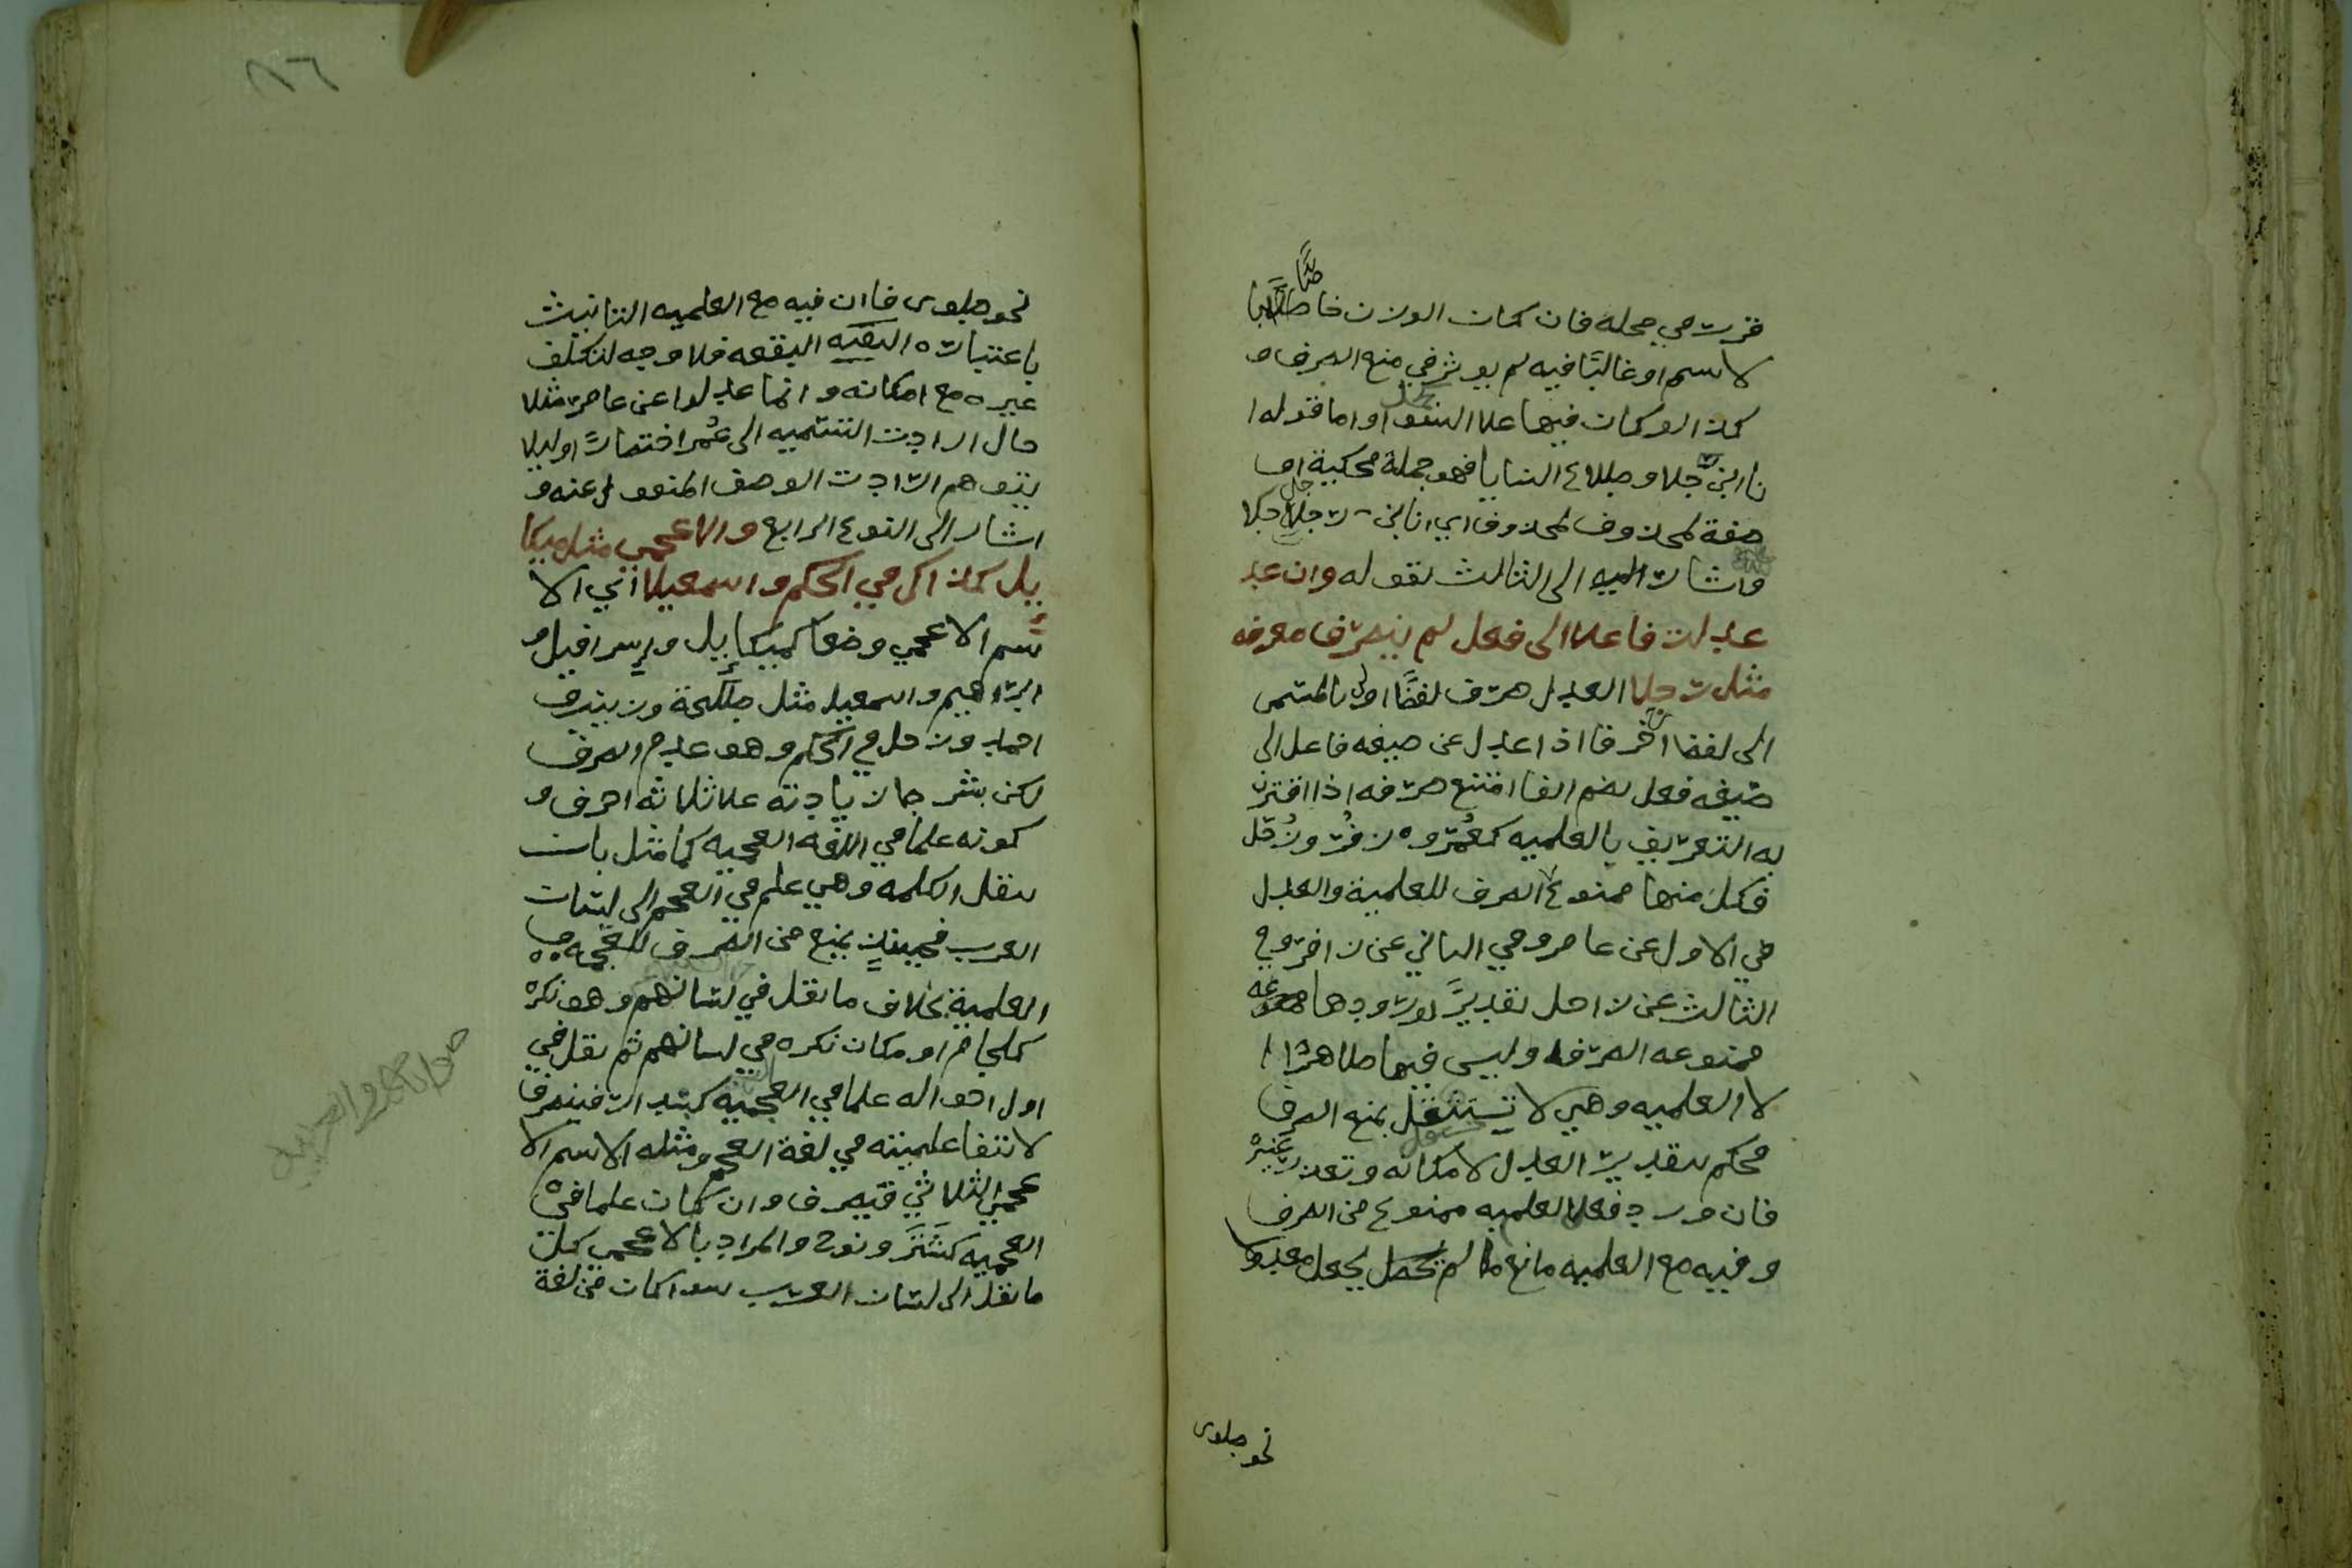 قررت في محله فان كان الوزن خاصًّا با
لاسم او غالبًا فيه لم يوثر في منع الصرف و
كذا لو كان فيها علا السوا واما قوله ا
نا ابن جلا وطلاع الثنايا فهو جملة محكية او
صفة لمحذوف اي انا ابن رجل جلا
واشار الى الثالث بقوله وان عد
عدلت فاعلا الى فعل لم ينصرف معرفه
مثل زحلا العدل صرف لفظًا اولى بالمسمى
الى لفظ اخر فاذا عدل عن صيغه فاعل الى
صيغه فعل بضم الفا امتنع صرفه اذا اقترن
به التعريف بالعلميه كعُمر وزُفَر وزُحَل
فكل منها ممنوع الصرف للعلمية والعدل
في الاول عن عامر وفي الثاني عن زافر وفي
الثالث عن زاحل تقديرًا لورودها
ممنوعه الصرف وليس فيها ظاهرًا ا
لا العلميه وهي لا تستقل بمنع الصرف
فحكم بتقدير العدل لامكانه وتعذر غيره
فان ورد فعل العلميه ممنوع من الصرف
وفيه مع العلميه مانع لم يجعل معدولا
نحو طوى
١٦
نحو طوى فان فيه مع العلميه التانيث
باعتباره البقعه فلا وجه لتكلف
غيره مع امكانه وانما عدلوا عن عامر مثلا
حال ارادت التسميه الى عُمر اختصارًا او ليلا
يتوهم ارادت الوصف المنقول عنه و
اشار الى النوع الرابع والاعجمي مثل ميكا
ييل كذاك في الحكم واسمعيلا اي الا
سم الاعجمي وضعا كميكاييل واسرافيل و
ابراهيم واسمعيل مثل طلحة وزينب و
احمد وزحل في الحكم وهو عدم الصرف
لكن بشرط زيادته علا ثلاثه احرف و
كونه علما في اللغه العجميه كما مثل بان
تنقل الكلمه وهي علم في العجم الى لسان
العرب فحينئذٍ يمنع من الصرف للعجمه و
العلمية بخلاف ما نقل في لسانهم وهو نكره
كلجام او مكان نكره في لسانهم ثم نقل في
اول احواله علما في العجميه كبندار فينصرف
لانتفا علميته في لغة العجم ومثله الاسم الا
عجمي الثلاثي فيصرف وان كان علما في
العجميه كشَتَر ونوح والمراد بالاعجمي كل
ما نقل الى لسان العرب سوا كان من لغة